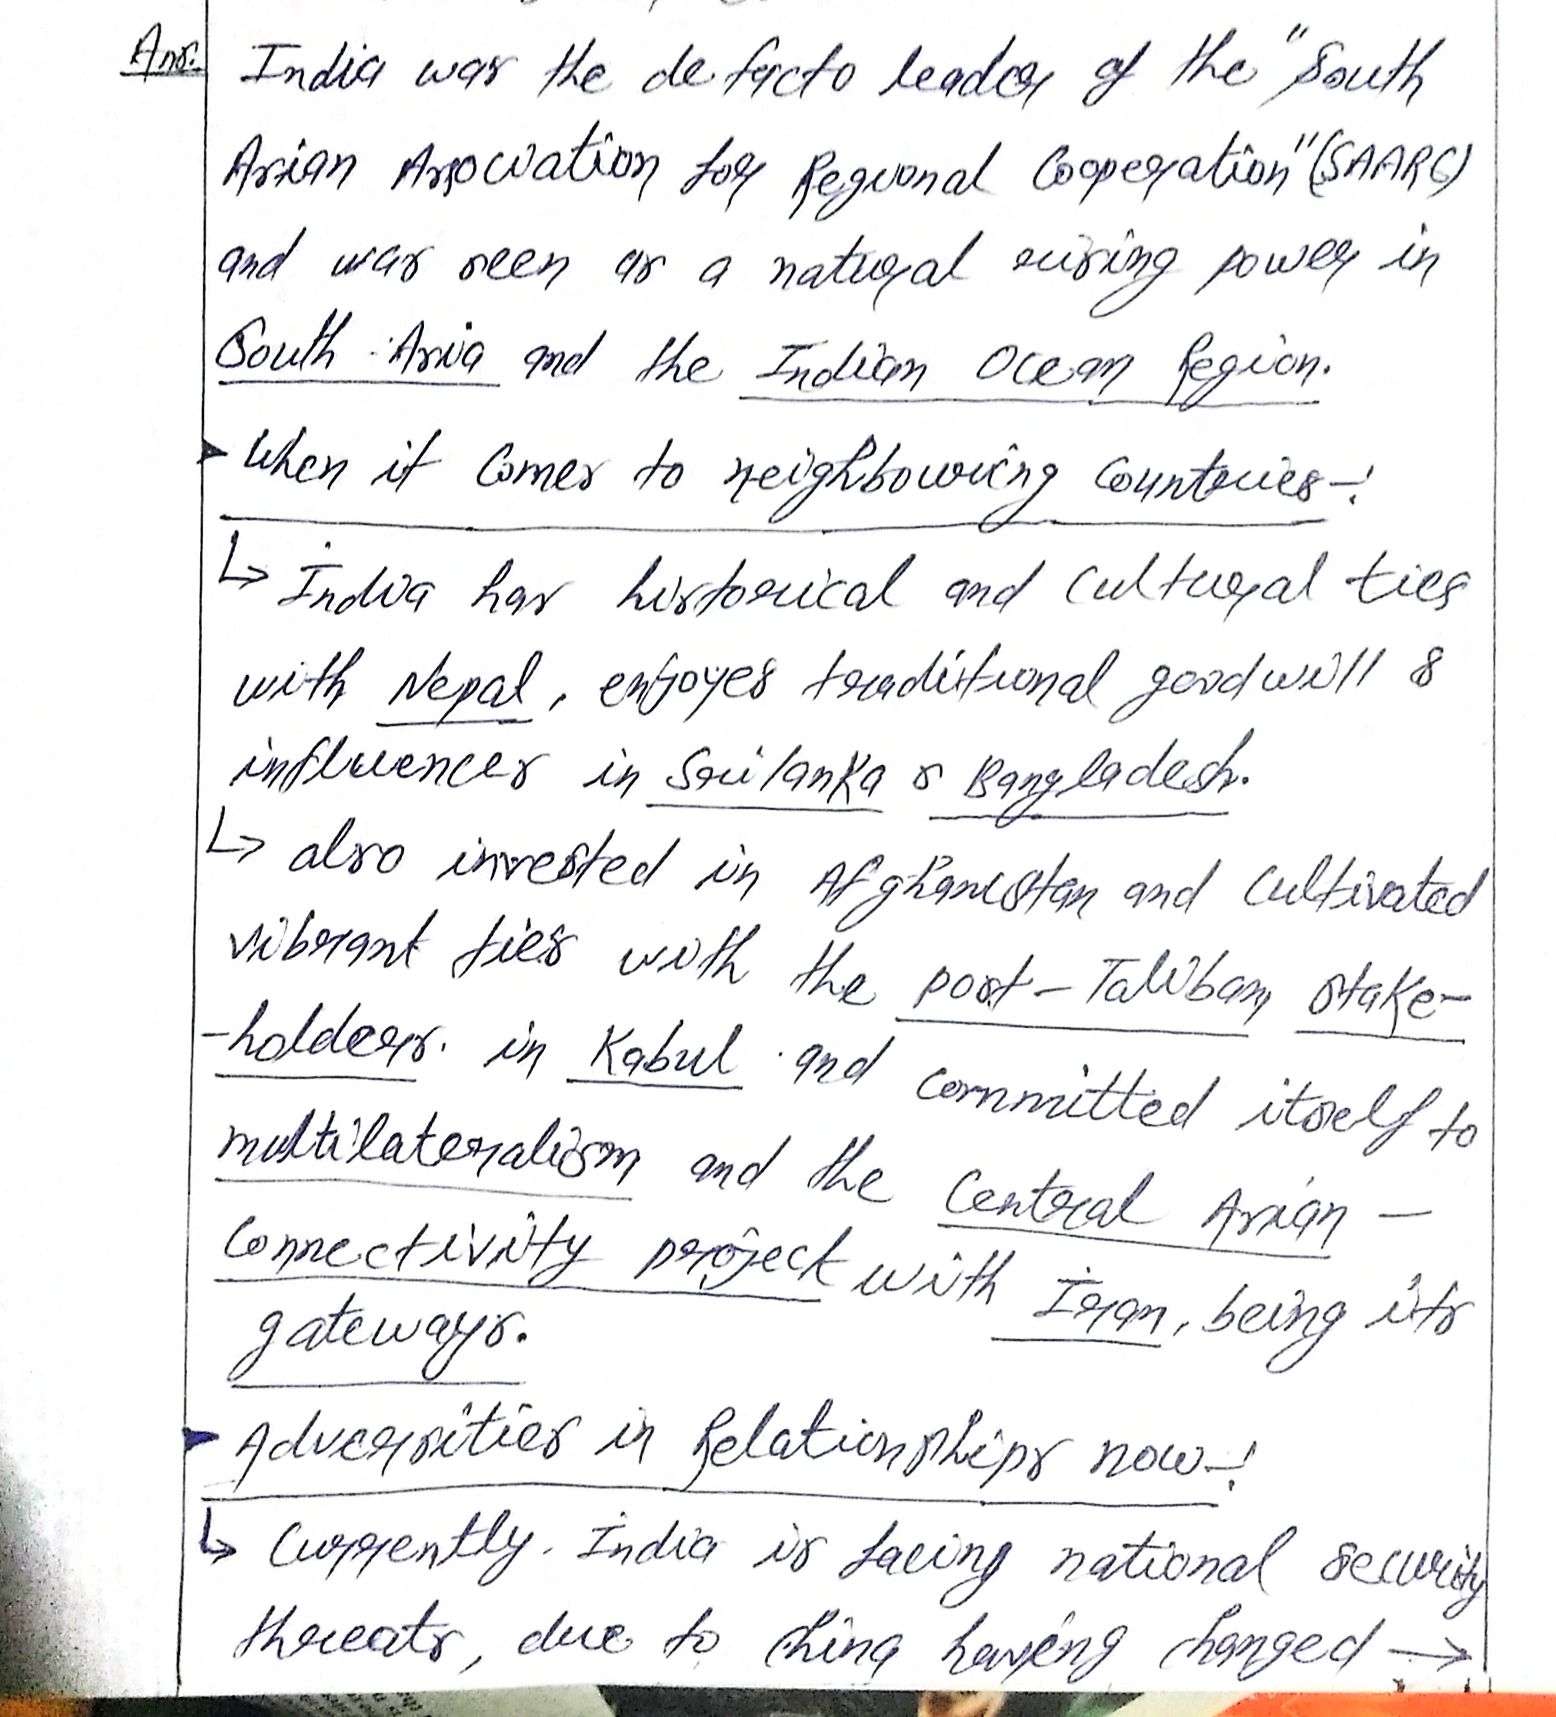 Ans. India was the de facto leader of the "South
Asian Association for Regional Cooperation" (SAARC)
and was seen as a natural rising power in
South Asia and the Indian Ocean Region.
When it comes to neighbouring countries-:
↳ India has historical and cultural ties
with Nepal, enjoyes traditional goodwill &
influences in Srilanka & Bangladesh.
↳ also invested in Afghanistan and cultivated
vibrant ties with the post-Taliban stake-
-holders. in Kabul and committed itself to
multilateralism and the Central Asian -
connectivity project with Iran, being its
gateways.
Adversities in Relationships now-:
↳ Currently. India is facing national security
threats, due to China having changed →